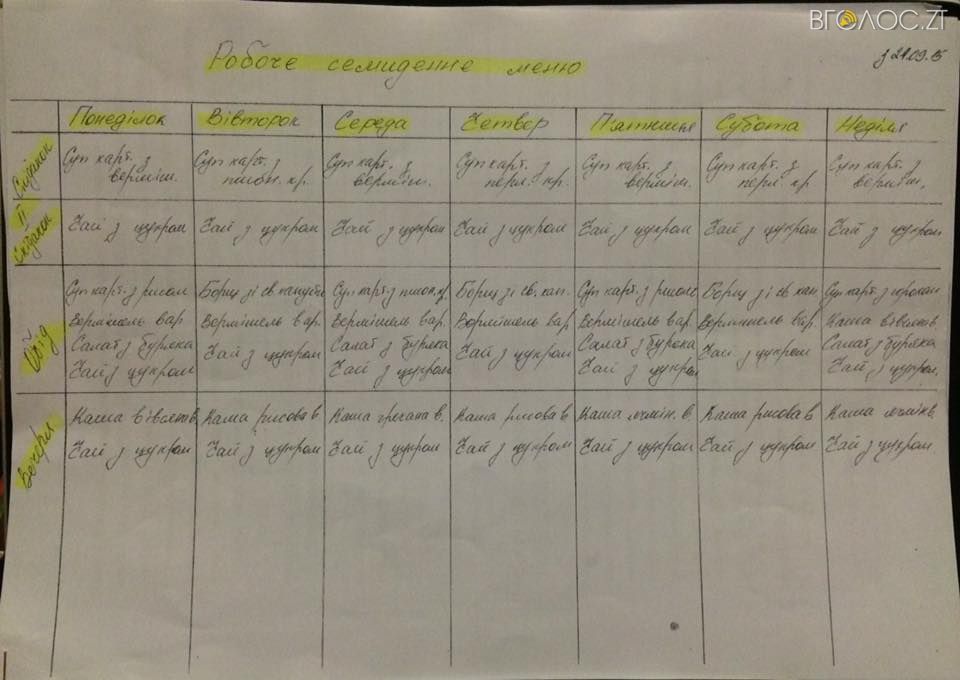 ВГОЛОС.ZT
з 21.09.15
Робоче семиденне меню
Понеділок Вівторок Середа Четвер П'ятниця Субота Неділя
Сніданок
Суп карт. з Суп карт. з Суп карт. з Суп карт. з Суп карт. з Суп карт. з Суп карт. з
верміш. пшон. кр. верміш. перл. кр. верміш. перл. кр. верміш.
II Сніданок
Чай з цукром Чай з цукром Чай з цукром Чай з цукром Чай з цукром Чай з цукром Чай з цукром
Обід
Суп карт. з рисом Борщ зі св. капусти Суп карт. з пшон. кр. Борщ зі св. кап. Суп карт. з рисом Борщ зі св. кап. Суп карт. з горохом
Вермішель вар. Вермішель вар. Вермішель вар. Вермішель вар. Вермішель вар. Вермішель вар. Каша вівсян в.
Салат з буряка Чай з цукром Салат з буряка Чай з цукром Салат з буряка Чай з цукром Салат з буряка
Чай з цукром Чай з цукром Чай з цукром Чай з цукром.
Вечеря
Каша вівсян в. Каша рисова в. Каша гречана в. Каша рисова в Каша ячмін. в. Каша рисова в Каша ячмін в.
Чай з цукром Чай з цукром Чай з цукром Чай з цукром Чай з цукром Чай з цукром Чай з цукром.